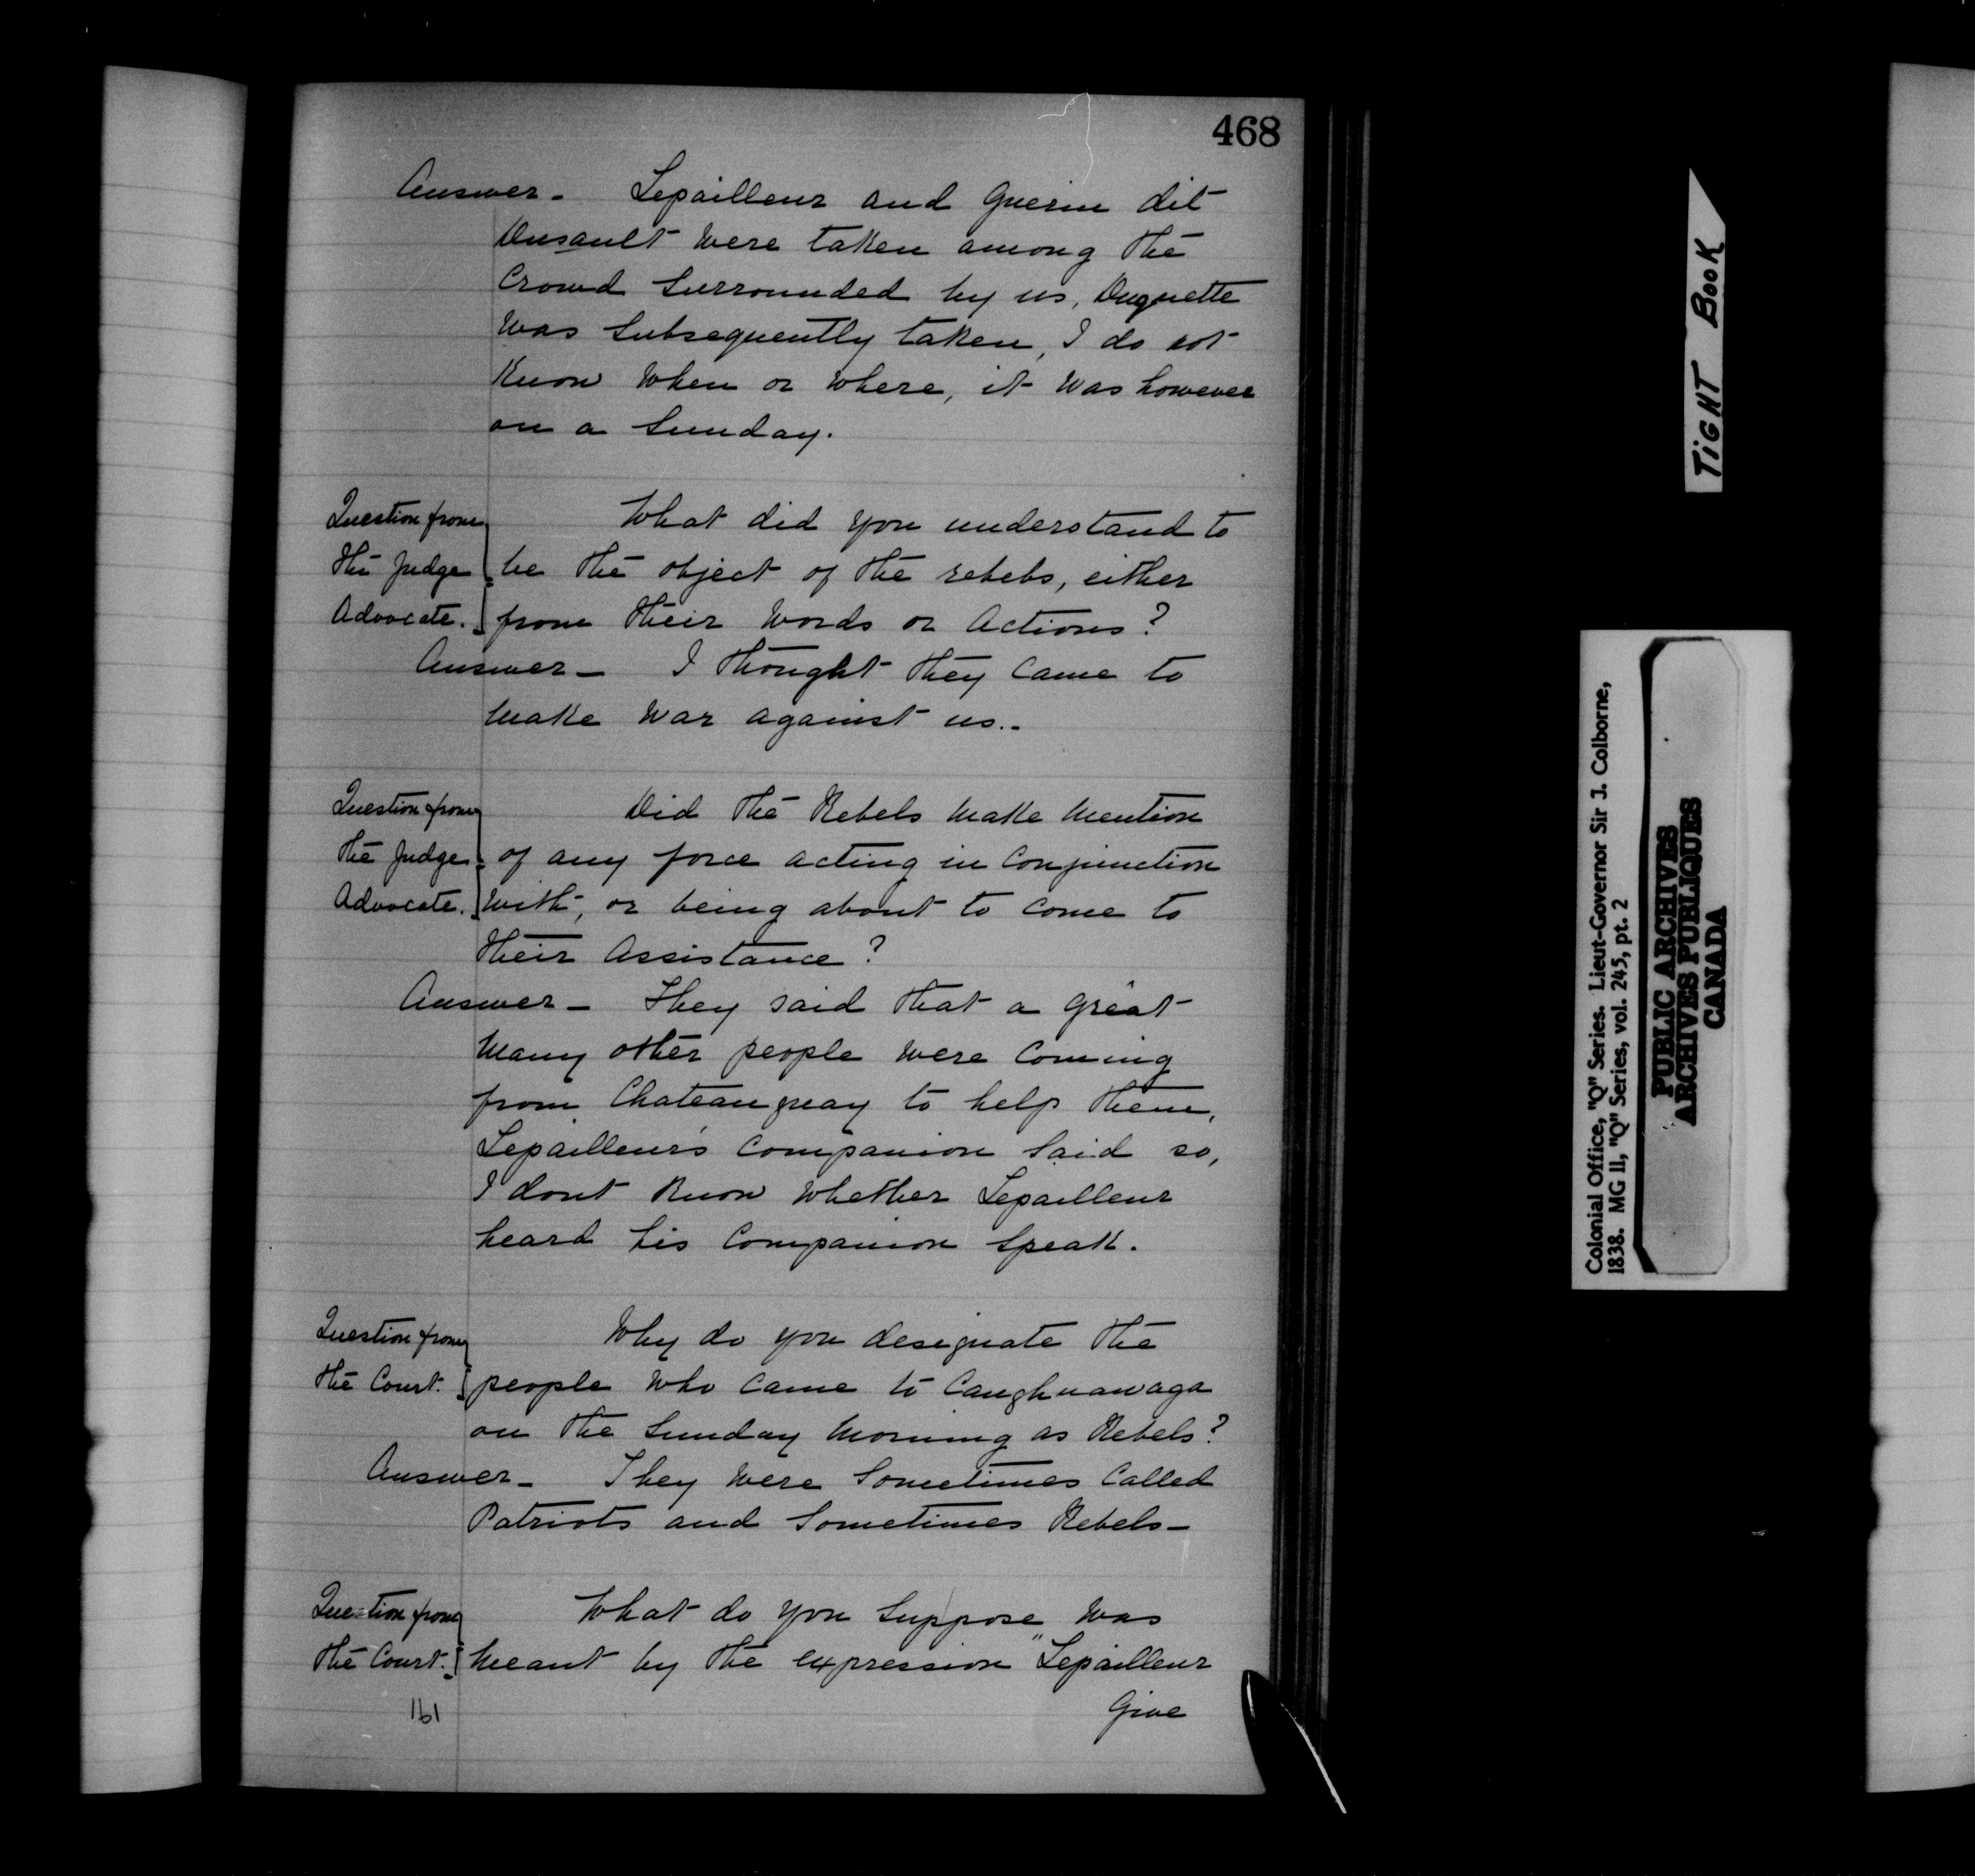 468
Answer - Lepailleur and Guerin dit
Dusault were taken among the
Crowd Surrounded by us, Duquette
was Subsequently taken, I do not
Know when or where, it was however
on a Sunday.
Question from What did you understand to
the Judge be the object of the rebels, either
Advocate. from their words or Actions?
Answer - I thought they Came to
make war against us.-
Question from Did the Rebels make mention
the Judge of any force acting in Conjunction
Advocate. with, or being about to Come to
their Assistance?
Answer - They said that a great
many other people were Coming
from Chateauguay to help them,
Lepailleur's Companion Said so,
I dont Know whether Lepailleur
heard his Companion Speak.
Question from Why do you designate the
the Court. people who Came to Caughnawaga
on the Sunday morning as Rebels?
Answer - They were Sometimes Called
Patriots and Sometimes Rebels -
Question from What do you Suppose was
the Court. meant by the expression "Lepailleur
161 Give
TIGHT BOOK
Colonial Office, "Q" Series. Lieut-Governor Sir J. Colborne,
1838. MG 11, "Q" Series, vol. 245, pt. 2
PUBLIC ARCHIVES
ARCHIVES PUBLIQUES
CANADA